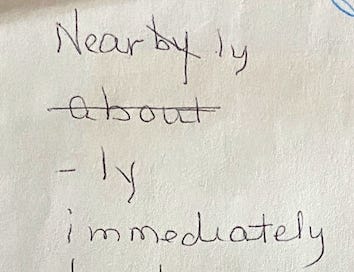 Nearby ly
about
- ly
immediately